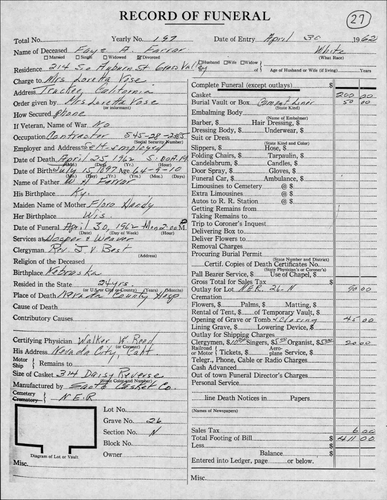 RECORD OF FUNERAL
27
Total No. Yearly No. 197 Date of Entry April 30 1962
Name of Deceased Faye A. Farrar White
Married Single Widowed Divorced Husband Wife Widow (What Race)
Residence 214 So Auburn St Grass Valley of Age of Husband or Wife (if living) Years
Charge to Mrs Loretta Vose
Address Truckee, California
Order given by Mrs Loretta Vose
(or informant)
How Secured phone
If Veteran, of War No
Occupation Contractor 545-28-
(Social Security Number)
Employer and Address Self-employed
Date of Death April 25, 1962 5:00 A.M
Date of Birth July 15, 1897 Age 64-9-10
Name of Father W. Farrar
His Birthplace Ky.
Maiden Name of Mother Flora Hendy
Her Birthplace Wis
Date of Funeral April 30, 1962 Mon 2:00 P.M
(Date) (Day of Week) (Hour)
Services at Hooper & Weaver
Clergyman Rev J. V. Best
(Address)
Religion of the Deceased
Birthplace Nebraska
Resided in the State 24 yrs
Place of Death Nevada County Hosp
Cause of Death
Contributory Causes
Certifying Physician Walker W. Reed
His Address Nevada City, Calif
Motor
Ship Remains to
Size of Casket 3/4 Daisy Reverse
(State Color and Number)
Manufactured by Casket Co.
Cemetery
Crematory N.E.R
Lot No.
Grave No. 26
Section No. N
Block No.
Owner
Diagram of Lot or Vault
Misc.
Complete Funeral (except outlays) $
Casket 200 00
Burial Vault or Box Comput Liner 50 00
Embalming Body
(Name of Embalmer)
Barber, $ Hair Dressing, $
Dressing Body, $ Underwear, $
Suit or Dress
(State Kind and Color)
Slippers, $ Hose, $
Folding Chairs, $ Tarpaulin, $
Candelabrum, $ Candles, $
Door Spray, $ Gloves, $
Funeral Car, $ Ambulance, $
Limousines to Cemetery @ $
Extra Limousines @ $
Autos to R. R. Station @ $
Getting Remains from
Taking Remains to
Trip to Coroner's Inquest
Delivering Box to
Deliver Flowers to
Removal Charges
Procuring Burial Permit
(State Number and District)
Certif. Copies of Death Certificates No.
(State Physician's or Coroner's)
Pall Bearer Service, $ Use of Chapel, $
Gross Total for Sales Tax $
Outlay for Lot N.E.R. 26-N 90 00
Cremation
Flowers, $ Palms, $ Matting, $
Rental of Tent, $ or Temporary Vault, $
Opening of Grave or Tomb & closing 45 00
Lining Grave, $ Lowering Device, $
Outlay for Shipping Charges
Clergymen, $10.00 Singers, $5.00 Organist, $5.00 20 00
Railroad
or Motor Tickets, $ Aeroplane Service, $
Telegr., Phone, Cable or Radio Charges
Cash Advanced
Out of town Funeral Director's Charges
Personal Service
line Death Notices in Papers
(Names of Newspapers)
Sales Tax $ 6 00
Total Footing of Bill $ 411 00
Less $
Balance $
Entered into Ledger, page or below.
Misc.